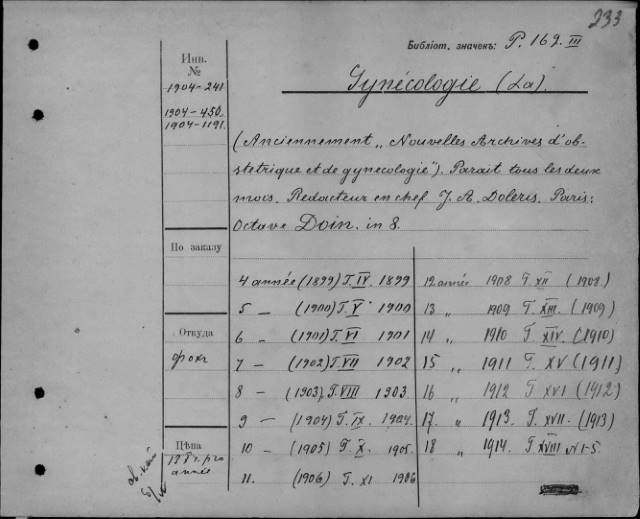 233
Библіот. значекъ: P. 162. III
Инв. №
1904-241
1904-450
1904-1191.
Gynécologie (La).
(Anciennement „Nouvelles Archives d'ob-
stetrique et de gynecologie"). Parait tous les deux
mois. Redacteur en chef J. A. Doleris. Paris:
Octave Doin. in 8.
По заказу
4 année (1899) T. IV. 1899
5 — (1900) T. V 1900
6 — (1901) T. VI 1901
7 — (1902) T. VII 1902
8 — (1903) T. VIII 1903.
9 — (1904) T. IX. 1904.
10 — (1905) T. X. 1905.
11. (1906) T. XI 1906
12 année 1908 T. XII (1908.)
13 „ 1909 T. XIII. (1909)
14 „ 1910 T. XIV. (1910)
15 „ 1911 T. XV (1911)
16 „ 1912 T. XVI (1912)
17. „ 1913. T. XVII. (1913)
18 „ 1914. T. XVIII N 1-5.
Откуда
Цѣна
année